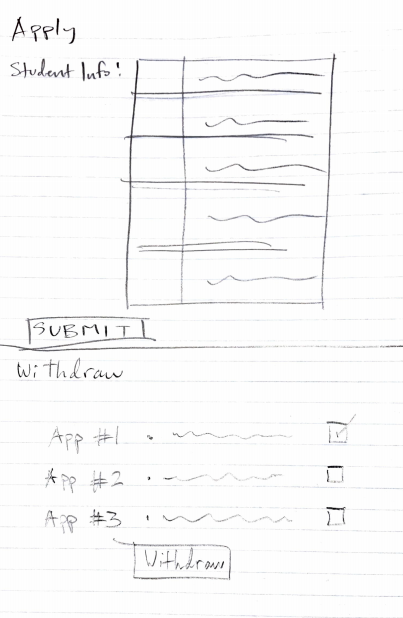 Apply
Student Info:
SUBMIT
Withdraw
App #1
App #2
App #3
Withdraw